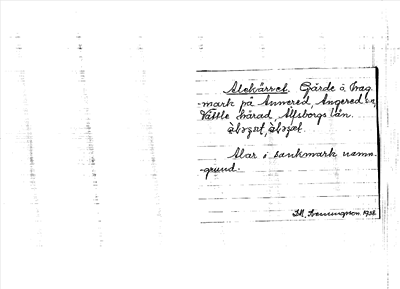 Alekärret. Gärde å hag
-mark på Annered, Angered sn,
Vättle härad, Älfsborgs län.
Alar i sankmark namn-
-grund.
1928.